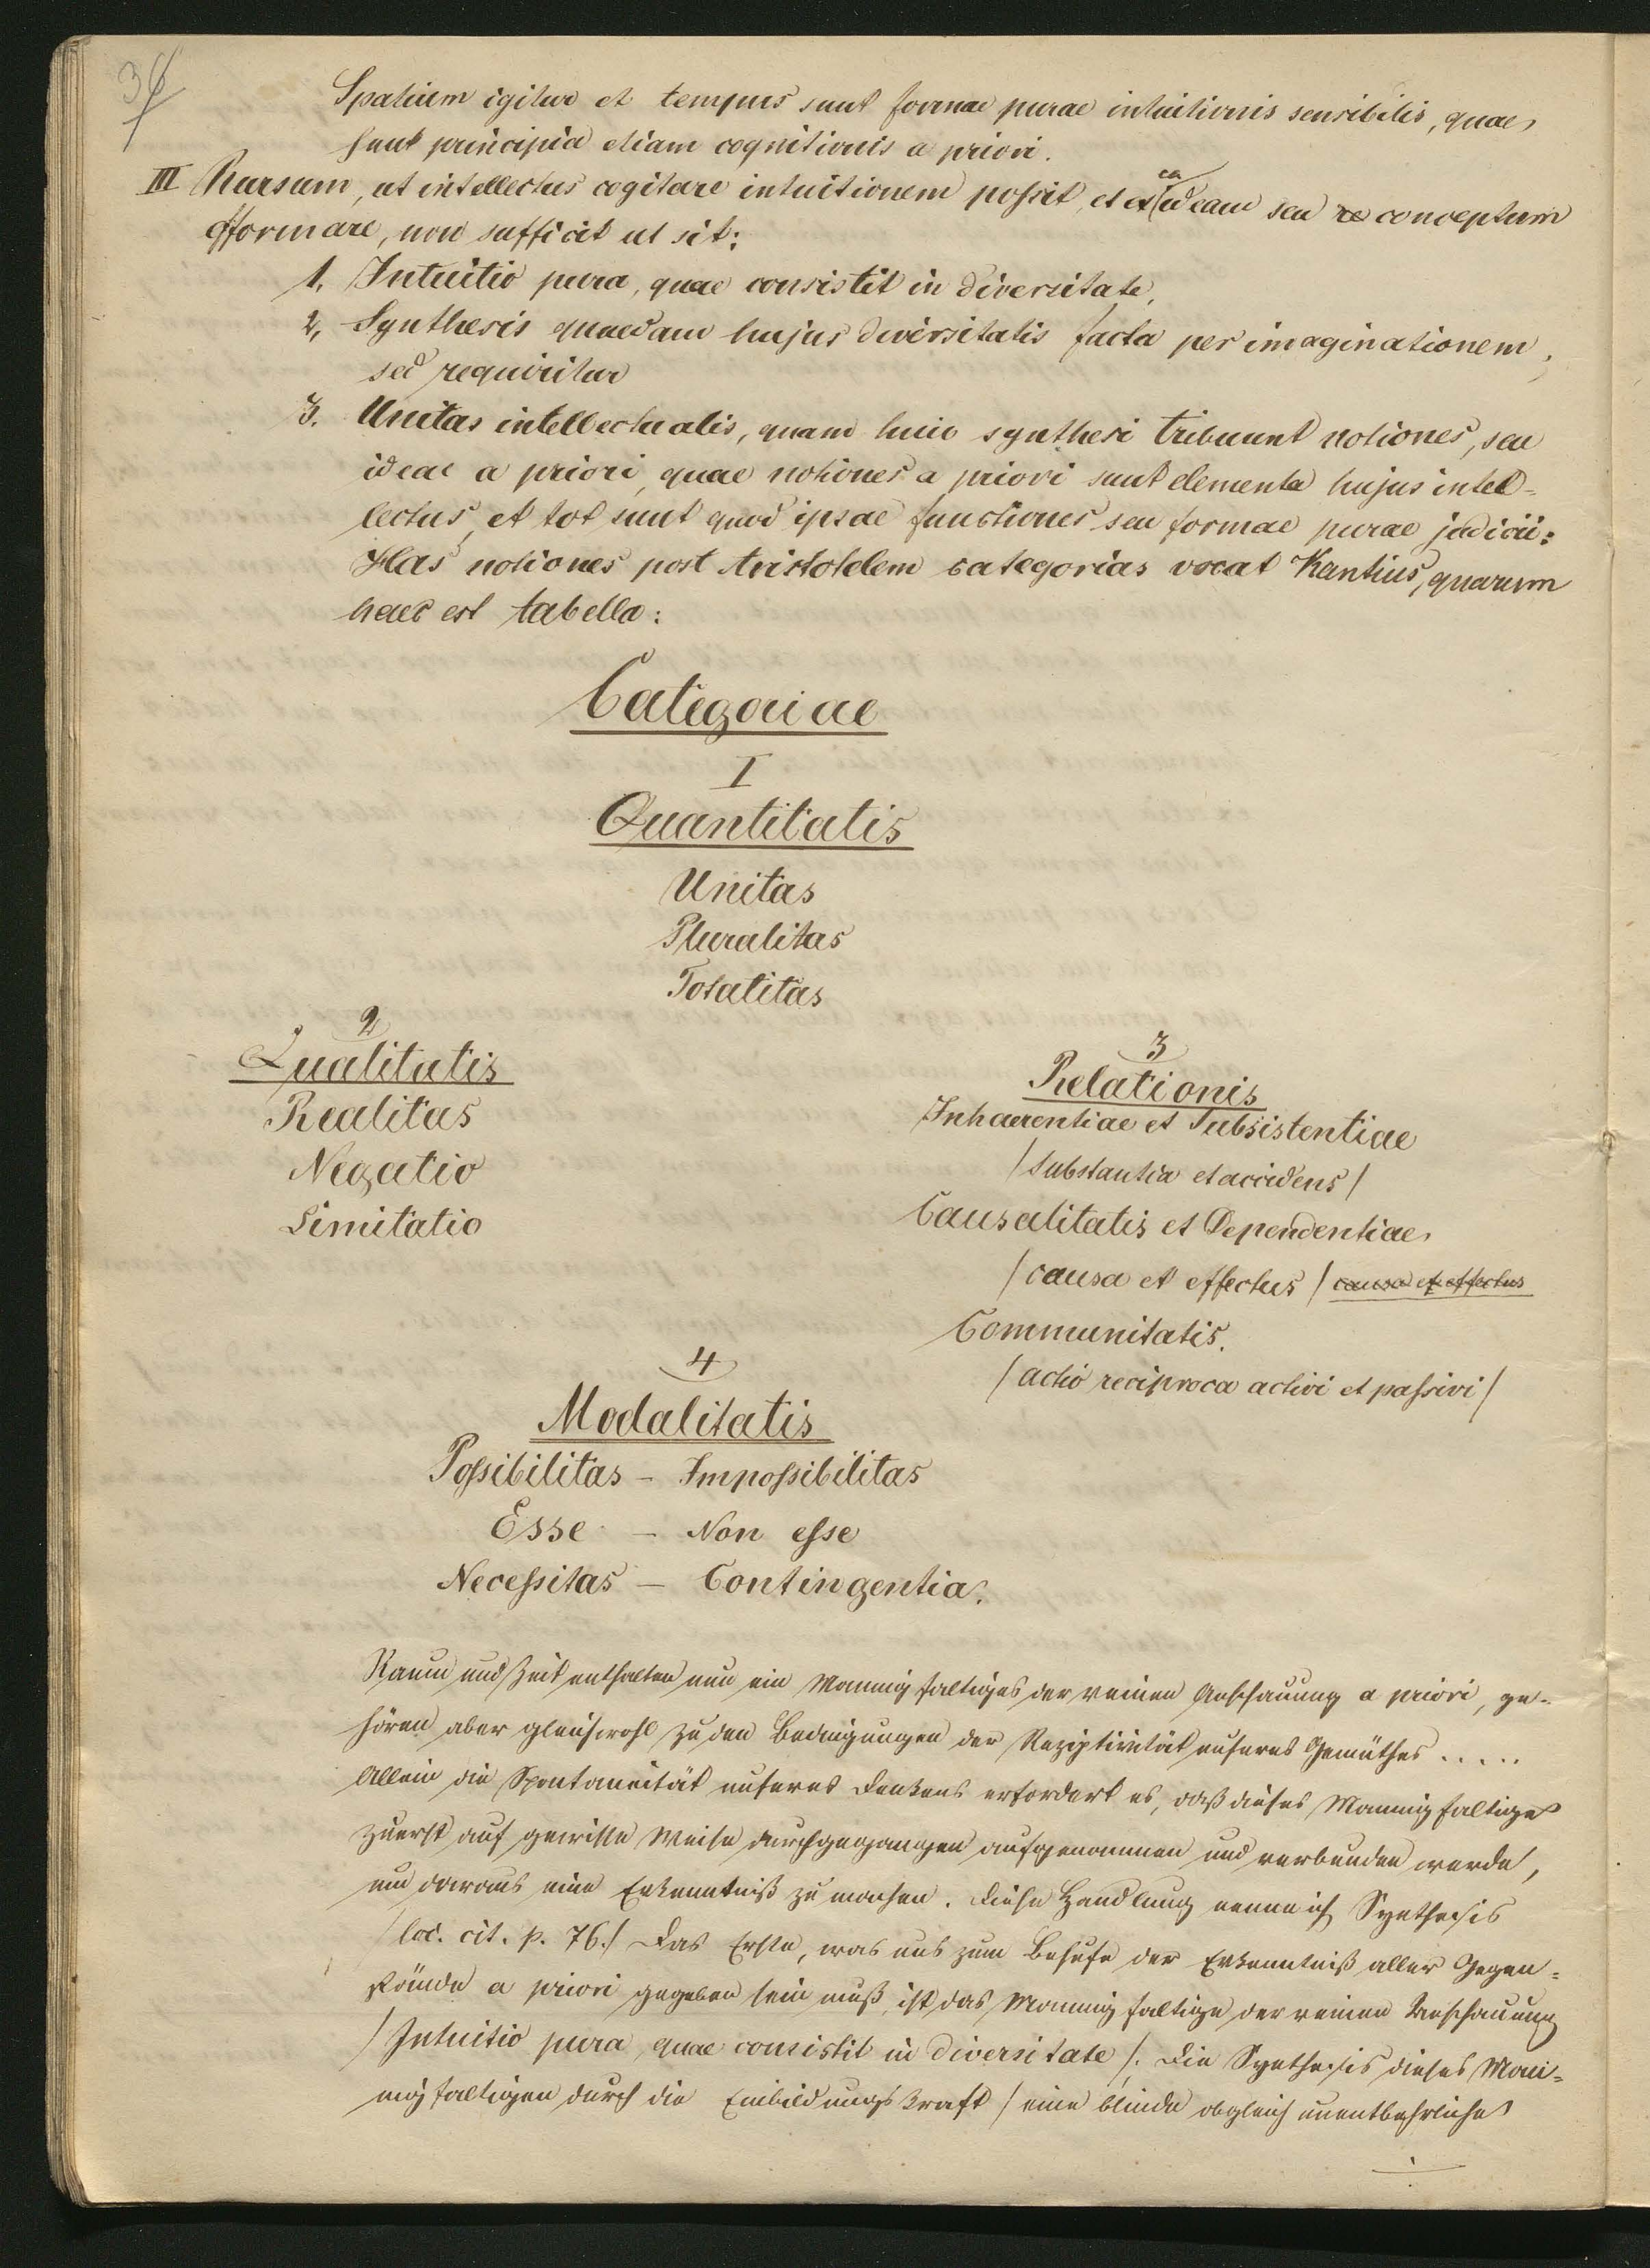 36
Spatium igitur et tempus sunt formae purae intuitionis sensibilis, quae
sunt principia etiam cognitionis a priori.
III Rursum, ut intellectus cogitare intuitionem possit, et ex ea ideam seu re conceptum
efformare, non sufficit ut sit:
1. Intuitio pura, quae consistit in diversitate,
2. Synthesis quaedam hujus diversitatis facta per imaginationem,
sed requiritur
3. Unitas intellectualis, quam huic synthesi tribuunt notiones, seu
ideae a priori, quae notiones a priori sunt elementa hujus intel=
lectus, et tot sunt quod ipsae functiones seu formae purae judicii:
Has notiones post Aristotelem categorias vocat Kantius, quarum
haec est tabella:
Categoriae
I
Quantitatis
Unitas
Pluralitas
Totalitas
2
Qualitatis
Realitas
Negatio
Limitatio
3
Relationis
Inhaerentiae et Subsistentiae
/Substantia et accidens/
Causalitatis et Dependentiae
/causa et effectus/ causa et effectus
Communitatis.
/actio reciproca activi et passivi/
4
Modalitatis
Possibilitas – Impossibilitas
Esse – Non esse
Necessitas – Contingentia.
Raum und Zeit enthalten nun ein Mannigfaltiges der reinen Anschauung a priori, ge=
hören aber gleichwohl zu den Bedingungen der Rezeptivität unseres Gemüthes .....
Allein die Spontaneität unseres Denkens erfordert es, daß dieses Mannigfaltige
zuerst auf gewisse Weise durchgegangen aufgenommen und verbunden werde,
um daraus eine Erkenntniß zu machen. Diese Handlung nenne ich Synthesis
/loc. cit. p. 76./ Das Erste, was uns zum Behufe der Erkenntniß aller Gegen=
stände a priori gegeben sein muß, ist das Mannigfaltige der reinen Anschauung
/Intuitio pura, quae consistit in diversitate/. Die Synthesis dieses Man=
nigfaltigen durch die Einbildungskraft /eine blinde obgleich unentbehrliche